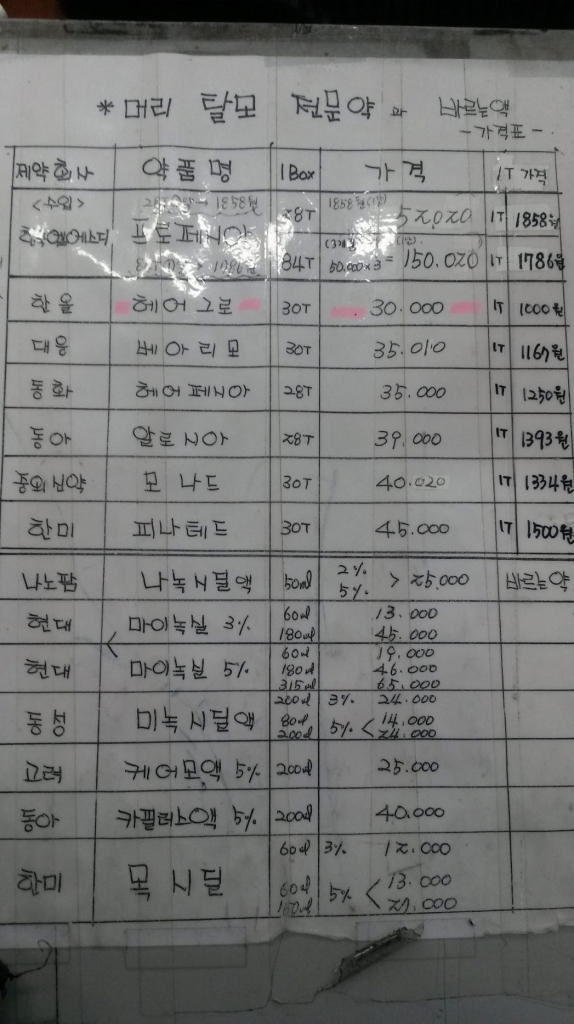 * 머리 탈모 전문약 과 바르는액
- 가격표 -
제약회사 약품명 1Box 가격 1T 가격
<수입> 28T 1858원(1일) 52.020 1T 1858원
한국엠에스디 프로페시아
84T 50,000×3 = 150.020 1T 1786원
한올 헤어그로 30T 30.000 1T 1000원
대웅 베아리모 30T 35.010 1T 1167원
동화 헤어페시아 28T 35.000 1T 1250원
동아 알로시아 28T 39.000 1T 1393원
중외신약 모나드 30T 40.020 1T 1334원
한미 피나테드 30T 45.000 1T 1500원
나노팜 나녹시딜액 50ml 2% 5% > 25.000 바르는약
현대 < 마이녹실 3% 60ml 13.000
180ml 45.000
현대 마이녹실 5% 60ml 19.000
180ml 46.000
315ml 65.000
동성 미녹시딜액 200ml 3% 24.000
80ml 5% < 14.000
200ml 24.000
고려 케어모액 5% 200ml 25.000
동아 카필러스액 5% 200ml 40.000
한미 목시딜 60ml 3% 12.000
60ml 5% < 13.000
27.000